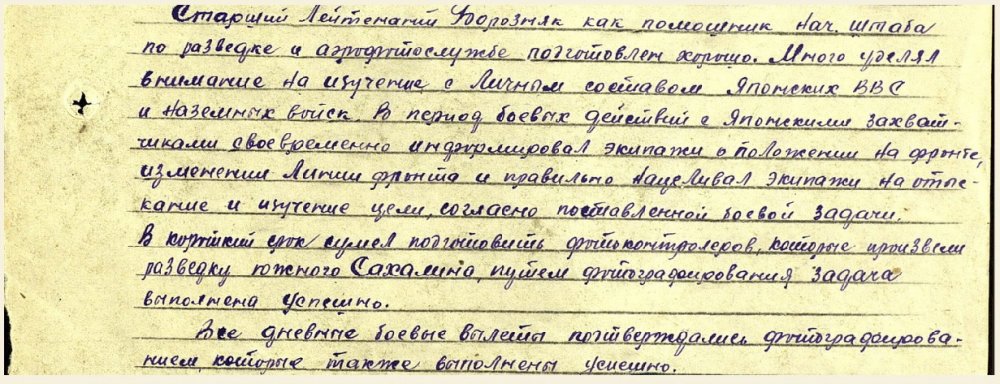 Старший Лейтенант Дворозняк как помошник нач. штаба
по разведке и аэрофотослужбе подготовлен хорошо. Много уделял
внимание на изучение с Личным составом Японских ВВС
и наземных войск. В период боевых действий с Японскими захват-
чиками своевременно информировал экипажи о положении на фронте,
изменении Линии фронта и правильно нацеливал экипажи на отыс-
кание и изучение цели, согласно поставленной боевой задачи.
В короткий срок сумел подготовить фотоконтролеров, которые произвели
разведку южного Сахалина, путем фотографирования задача
выполнена успешно.
Все дневные боевые вылеты потверждались фотографирова-
нием, которые также выполнены успешно.